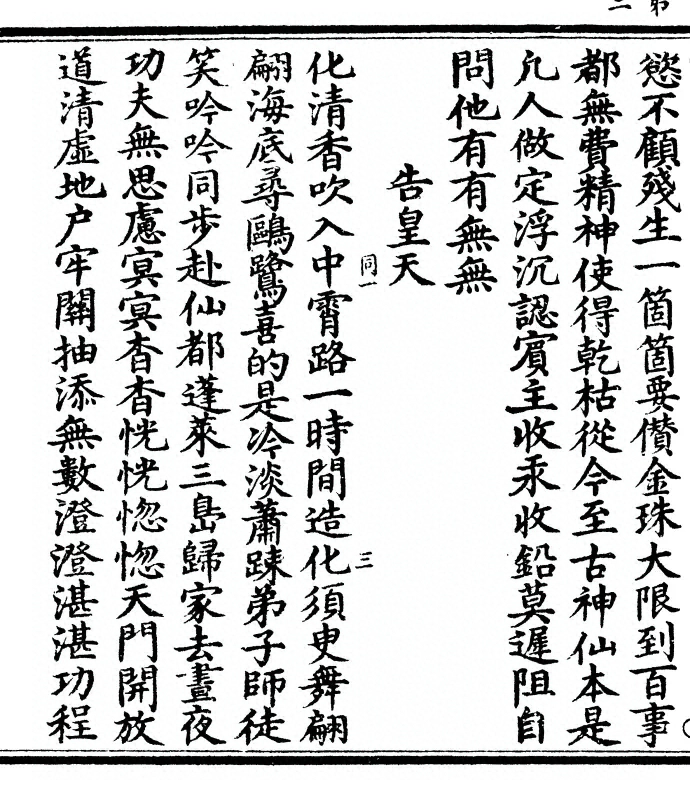 慾不顧殘生一箇箇要儹金珠大限到百事
都無費精神使得乾枯從今至古神仙本是
凢人做定浮沉認賔主收汞收鉛莫遲阻自
問他有有無無
告皇天
同一
三
化清香吹入中霄路一時間造化須臾舞翩
翩海底尋鷗鷺喜的是冷淡蕭踈弟子師徒
笑吟吟同步赴仙都蓬萊三島歸家去晝夜
功夫無思慮冥冥杳杳恍恍惚惚天門開放
道清虛地户牢關抽添無數澄澄湛湛功程